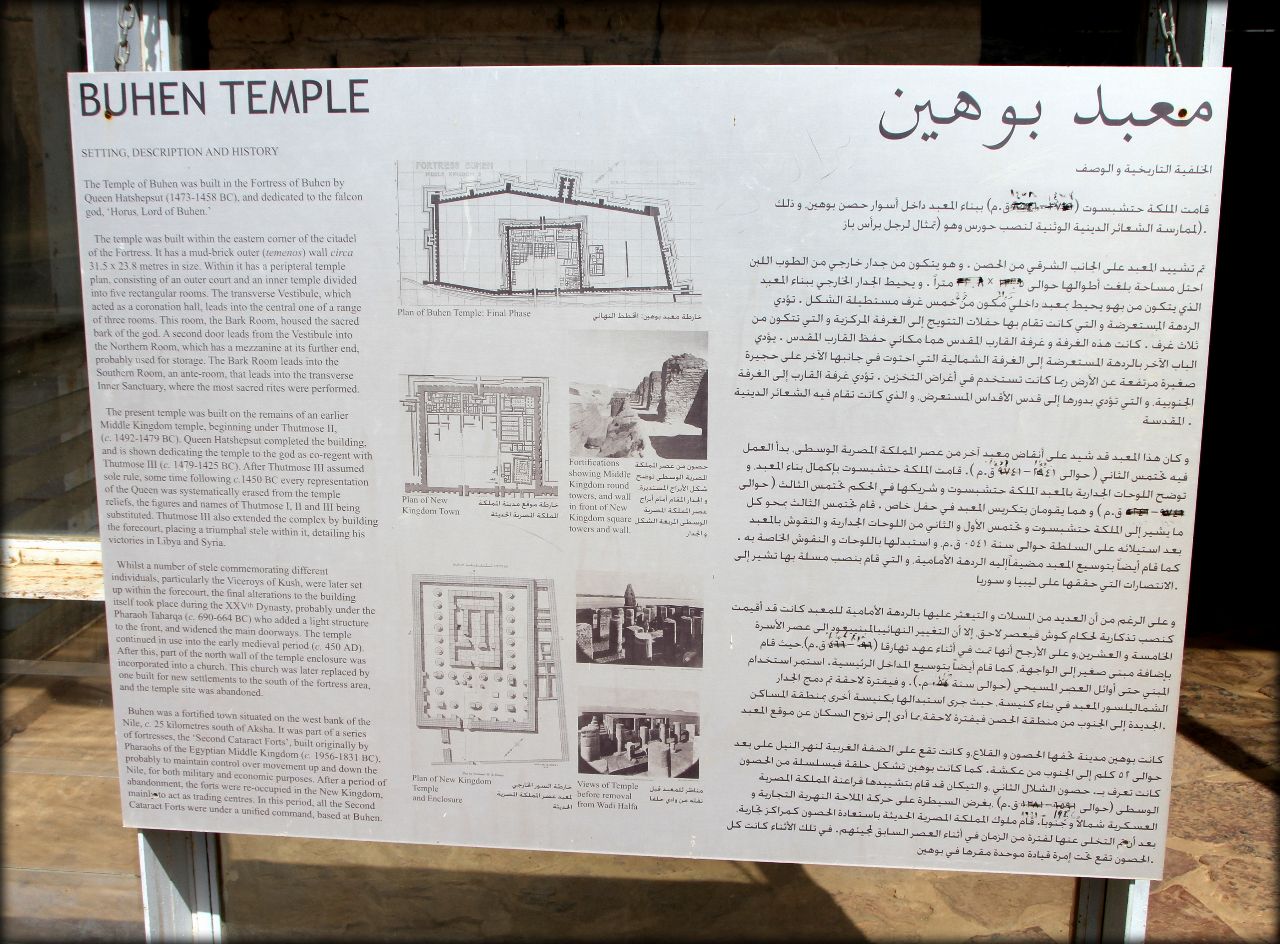 BUHEN TEMPLE
SETTING, DESCRIPTION AND HISTORY
The Temple of Buhen was built in the Fortress of Buhen by
Queen Hatshepsut (1473-1458 BC), and dedicated to the falcon
god, ‘Horus, Lord of Buhen.’
The temple was built within the eastern corner of the citadel
of the Fortress. It has a mud-brick outer (temenos) wall circa
31.5 x 23.8 metres in size. Within it has a peripteral temple
plan, consisting of an outer court and an inner temple divided
into five rectangular rooms. The transverse Vestibule, which
acted as a coronation hall, leads into the central one of a range
of three rooms. This room, the Bark Room, housed the sacred
bark of the god. A second door leads from the Vestibule into
the Northern Room, which has a mezzanine at its further end,
probably used for storage. The Bark Room leads into the
Southern Room, an ante-room, that leads into the transverse
Inner Sanctuary, where the most sacred rites were performed.
The present temple was built on the remains of an earlier
Middle Kingdom temple, beginning under Thutmose II,
(c. 1492-1479 BC). Queen Hatshepsut completed the building,
and is shown dedicating the temple to the god as co-regent with
Thutmose III (c. 1479-1425 BC). After Thutmose III assumed
sole rule, some time following c.1450 BC every representation
of the Queen was systematically erased from the temple
reliefs, the figures and names of Thutmose I, II and III being
substituted. Thutmose III also extended the complex by building
the forecourt, placing a triumphal stele within it, detailing his
victories in Libya and Syria.
Whilst a number of stele commemorating different
individuals, particularly the Viceroys of Kush, were later set
up within the forecourt, the final alterations to the building
itself took place during the XXVth Dynasty, probably under the
Pharaoh Taharqa (c. 690-664 BC) who added a light structure
to the front, and widened the main doorways. The temple
continued in use into the early medieval period (c. 450 AD).
After this, part of the north wall of the temple enclosure was
incorporated into a church. This church was later replaced by
one built for new settlements to the south of the fortress area,
and the temple site was abandoned.
Buhen was a fortified town situated on the west bank of the
Nile, c. 25 kilometres south of Aksha. It was part of a series
of fortresses, the ‘Second Cataract Forts’, built originally by
Pharaohs of the Egyptian Middle Kingdom (c. 1956-1831 BC),
probably to maintain control over movement up and down the
Nile, for both military and economic purposes. After a period of
abandonment, the forts were re-occupied in the New Kingdom,
mainly to act as trading centres. In this period, all the Second
Cataract Forts were under a unified command, based at Buhen.
FORTRESS BUHEN
Plan of Buhen Temple: Final Phase
خارطة معبد بوهين: المخطط النهائي
Plan of New
Kingdom Town
خارطة موقع مدينة المملكة
المملكة المصرية الحديثة
Fortifications
showing Middle
Kingdom round
towers, and wall
in front of New
Kingdom square
towers and wall.
حصون من عصر المملكة
المصرية الوسطى توضح
شكل الأبراج المستديرة
و الجدار المقام أمام أبراج
عصر المملكة المصرية
الوسطى المربعة الشكل
و الجدار
Plan of New Kingdom
Temple
and Enclosure
خارطة السور الخارجي
لمعبد عصر المملكة المصرية
الحديثة
Views of Temple
before removal
from Wadi Halfa
مناظر للمعبد قبل
نقله من وادي حلفا
معبد بوهين
الخلفية التاريخية و الوصف
قامت الملكة حتشبسوت ق.م) ببناء المعبد داخل أسوار حصن بوهين. و ذلك
لممارسة الشعائر الدينية الوثنية لنصب حورس وهو (تمثال لرجل برأس باز).
تم تشييد المعبد على الجانب الشرقي من الحصن . و هو يتكون من جدار خارجي من الطوب اللبن
احتل مساحة بلغت أطوالها حوالى متراً . و يحيط الجدار الخارجي ببناء المعبد
الذي يتكون من بهو يحيط بمعبد داخلي مكون من خمس غرف مستطيلة الشكل . تؤدي
الردهة المستعرضة و التي كانت تقام بها حفلات التتويج إلى الغرفة المركزية و التي تتكون من
ثلاث غرف . كانت هذه الغرفة و غرفة القارب المقدس هما مكاني حفظ القارب المقدس . يؤدي
الباب الآخر بالردهة المستعرضة إلى الغرفة الشمالية التي احتوت في جانبها الآخر على حجيرة
صغيرة مرتفعة عن الأرض ربما كانت تستخدم في أغراض التخزين . تؤدي غرفة القارب إلى الغرفة
الجنوبية. و التي تؤدي بدورها إلى قدس الأقداس المستعرض. و الذي كانت تقام فيه الشعائر الدينية
المقدسة .
و كان هذا المعبد قد شيد على أنقاض معبد آخر من عصر المملكة المصرية الوسطى. بدأ العمل
فيه تحتمس الثاني (حوالى ق.م). قامت الملكة حتشبسوت بإكمال بناء المعبد. و
توضح اللوحات الجدارية بالمعبد الملكة حتشبسوت و شريكها في الحكم تحتمس الثالث ( حوالى
ق.م) و هما يقومان بتكريس المعبد في حفل خاص . قام تحتمس الثالث بمحو كل
ما يشير إلى الملكة حتشبسوت و تحتمس الأول و الثاني من اللوحات الجدارية و النقوش بالمعبد
بعد استيلائه على السلطة حوالى سنة ٠٥٤١ ق.م. و استبدلها باللوحات و النقوش الخاصة به .
كما قام أيضاً بتوسيع المعبد مضيفاً إليه الردهة الأمامية. و التي قام بنصب مسلة بها تشير إلى
الانتصارات التي حققها على ليبيا و سوريا.
و على الرغم من أن العديد من المسلات و التي عثر عليها بالردهة الأمامية للمعبد كانت قد أقيمت
كنصب تذكارية لحكام كوش في عصر لاحق. إلا أن التغيير النهائي للمبنى يعود إلى عصر الأسرة
الخامسة و العشرين. و على الأرجح أنها تمت في أثناء عهد تهارقا ق.م). حيث قام
بإضافة مبنى صغير إلى الواجهة. كما قام أيضاً بتوسيع المداخل الرئيسية . استمر استخدام
المبنى حتى أوائل العصر المسيحي (حوالى سنة م.). و في فترة لاحقة تم دمج الجدار
الشمالي لسور المعبد في بناء كنيسة. حيث جرى استبدالها بكنيسة أخرى بمنطقة المساكن
الجديدة إلى الجنوب من منطقة الحصن في فترة لاحقة. مما أدى إلى نزوح السكان عن موقع المعبد.
كانت بوهين مدينة تحفها الحصون و القلاع و كانت تقع على الضفة الغربية لنهر النيل على بعد
حوالى ٥٢ كلم إلى الجنوب من عكشة. كما كانت بوهين تشكل حلقة في سلسلة من الحصون
كانت تعرف بـ حصون الشلال الثاني و التي كان قد قام بتشييدها فراعنة المملكة المصرية
الوسطى (حوالى ق.م). بغرض السيطرة على حركة الملاحة النهرية التجارية و
العسكرية شمالاً و جنوباً. قام ملوك المملكة المصرية الحديثة باستعادة الحصون كمراكز تجارية.
بعد أن تم التخلي عنها لفترة من الزمان في أثناء العصر السابق لمجيئهم. في تلك الأثناء كانت كل
الحصون تقع تحت إمرة قيادة موحدة مقرها في بوهين.